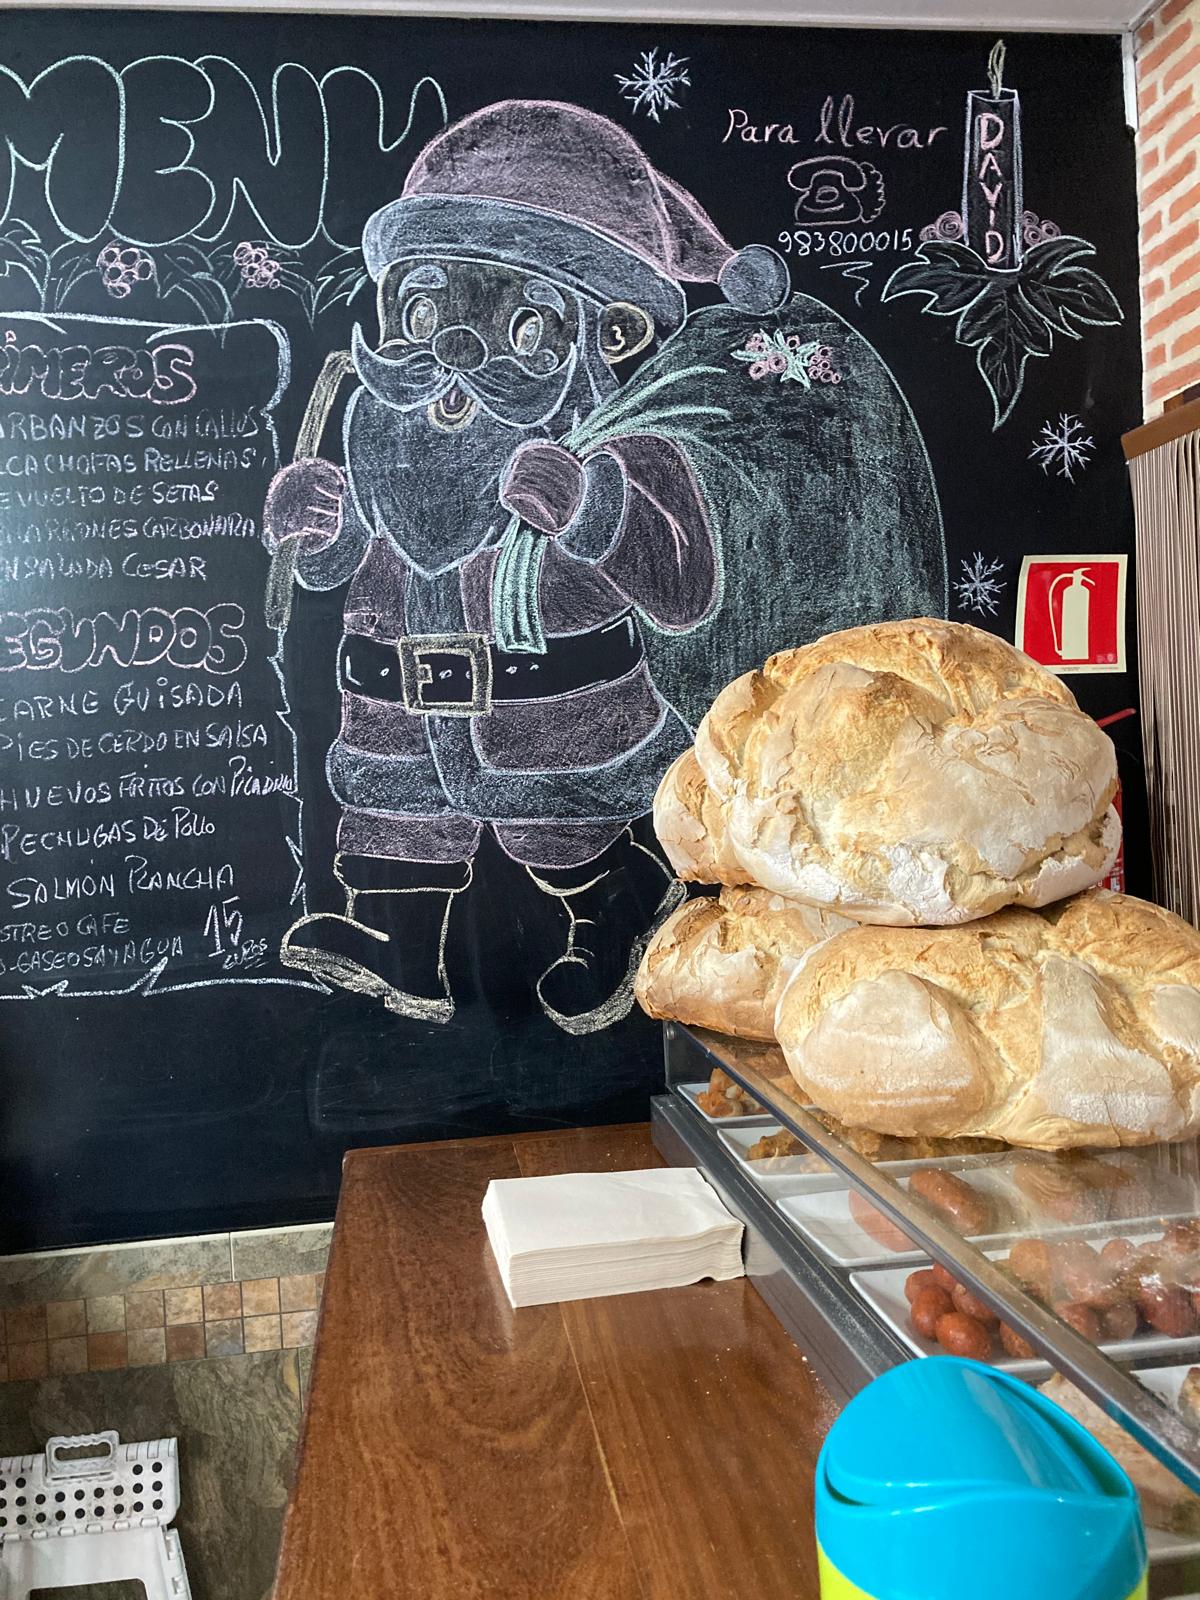 MENU
Para llevar
983800015
DAVID
RIMEROS
ARBANZOS CON CALLOS
LCACHOFAS RELLENAS
EVUELTO DE SETAS
CARBONARA
NSALADA CESAR
EGUNDOS
CARNE GUISADA
PIES DE CERDO EN SALSA
HUEVOS FRITOS CON Picadillo
PECHUGAS DE Pollo
SALMÓN PLANCHA
STRE O CAFE
O-GASEOSA Y AGUA
15 EUROS